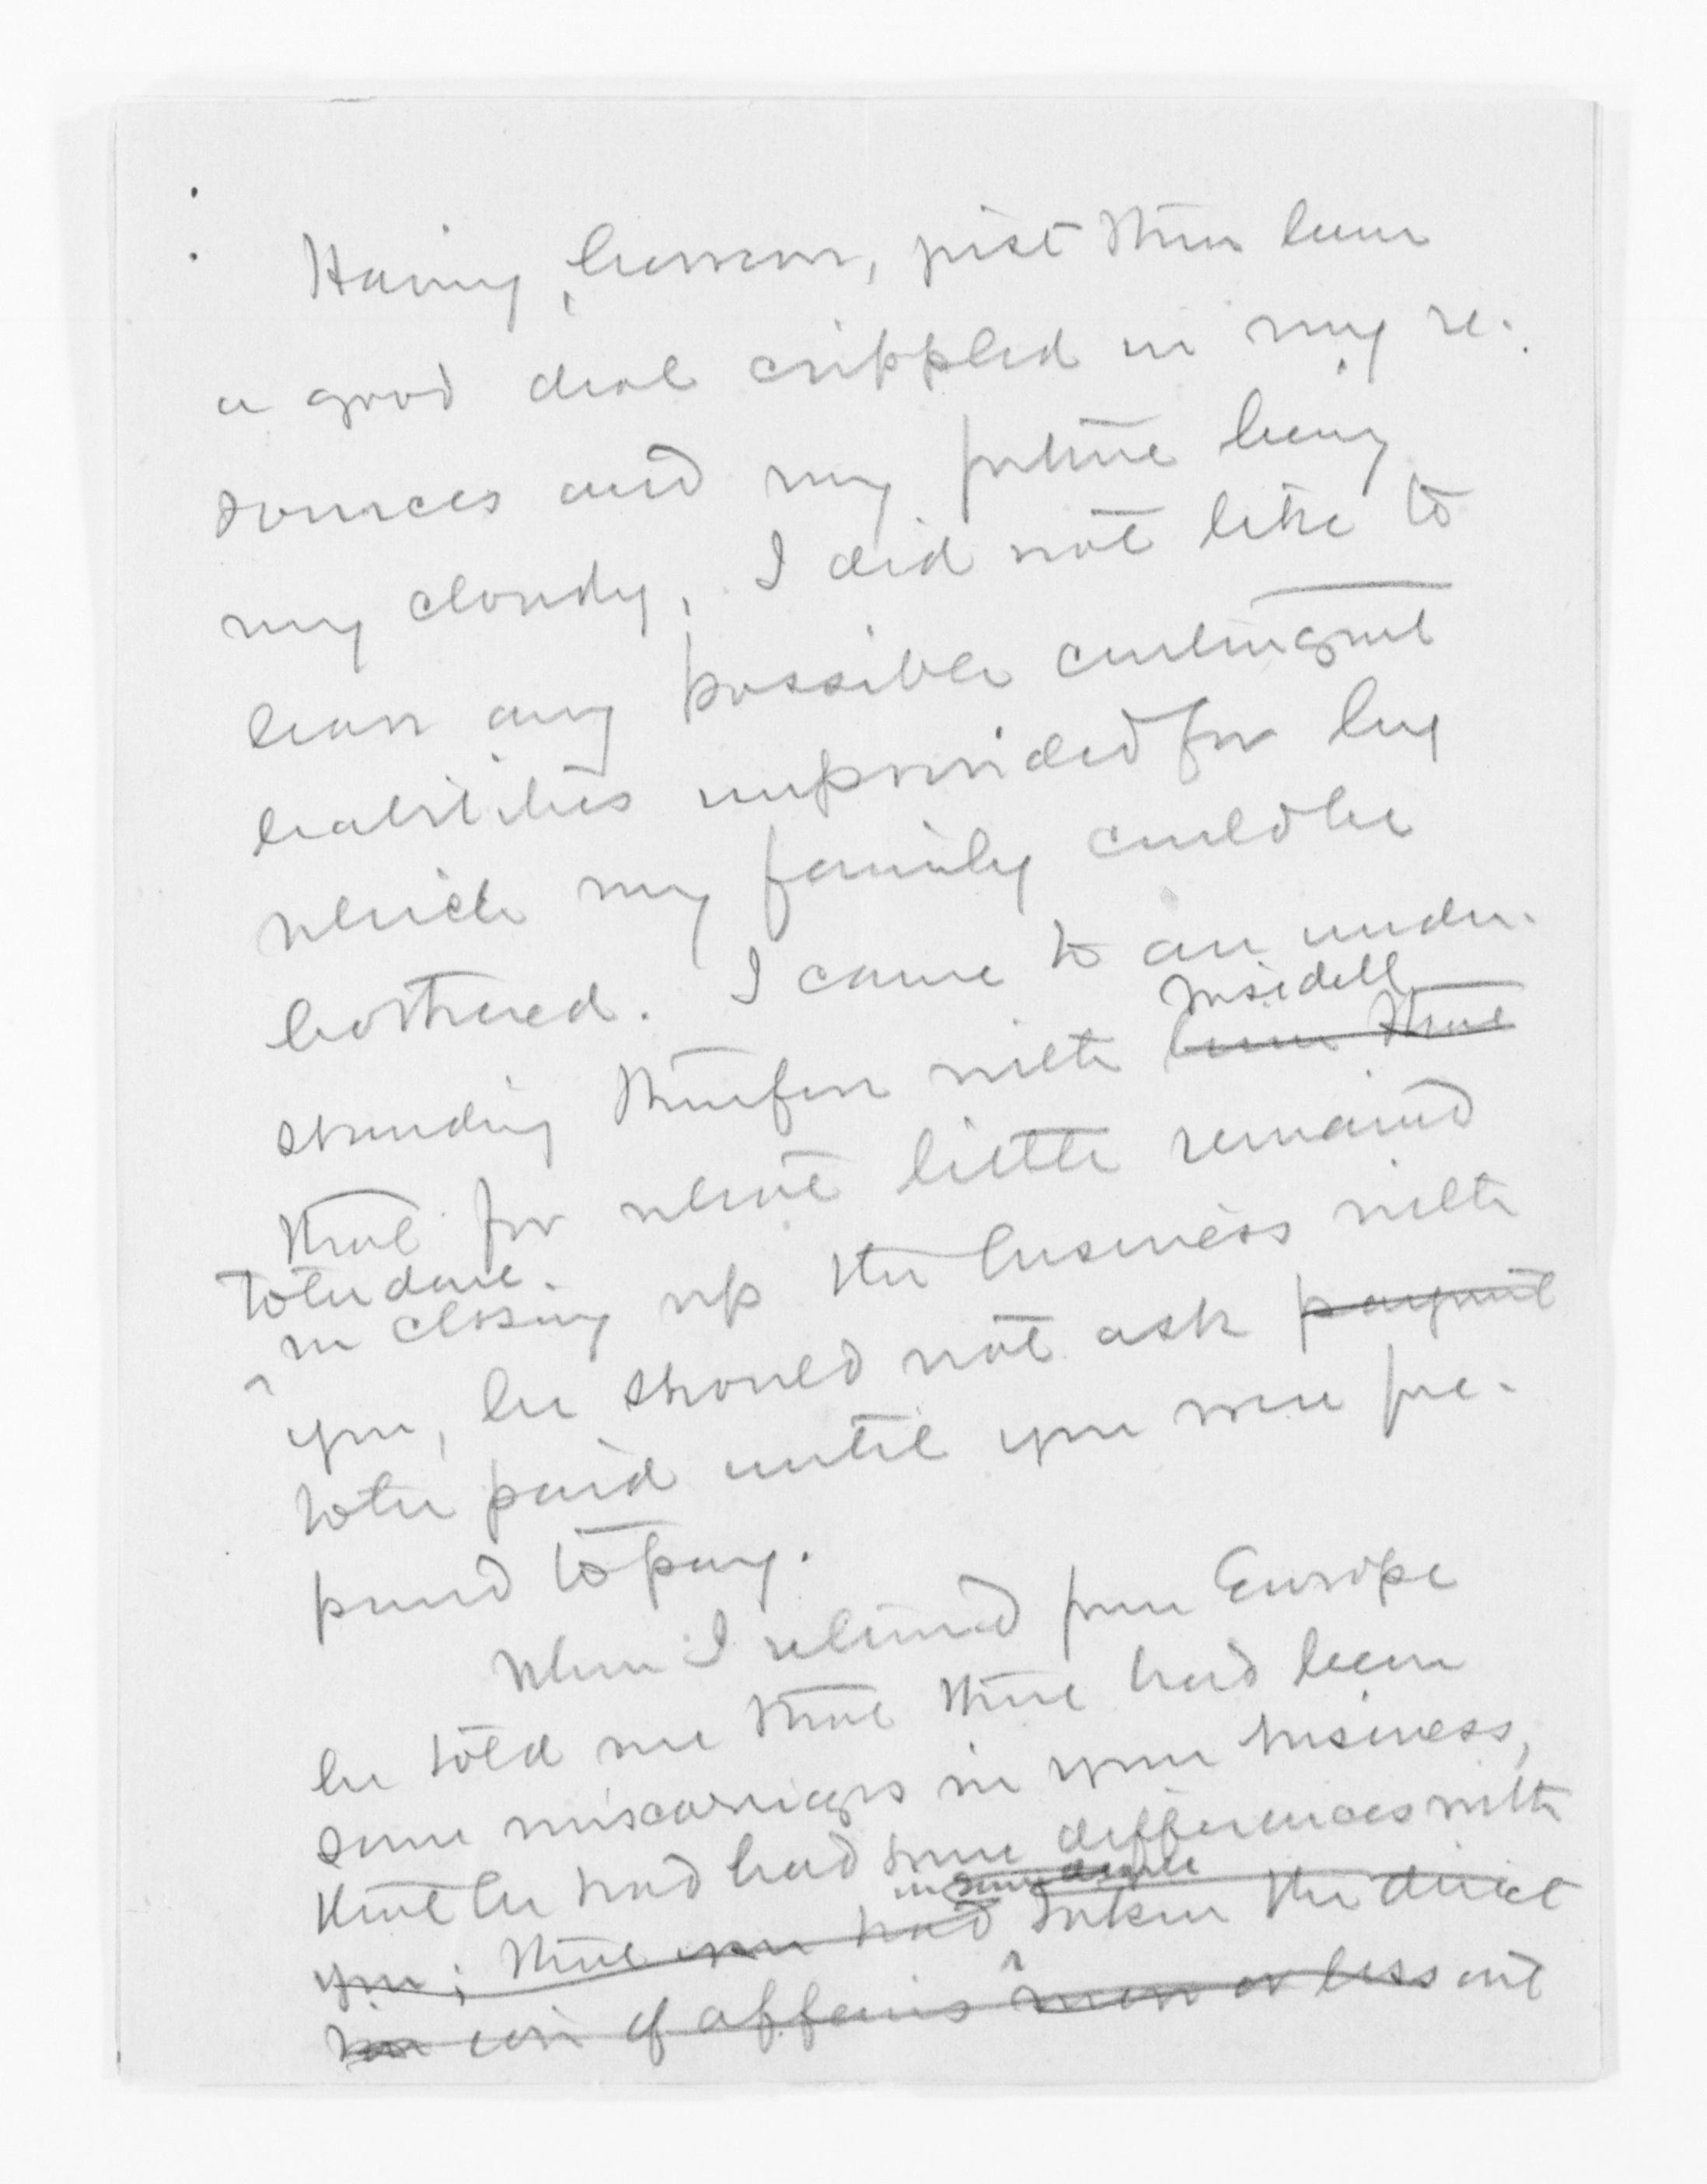 Having, however, just then been
a good deal crippled in my re-
sources and my future being
very cloudy, I did not like to
leave any possible contingent
liabilities unprovided for by
which my family could be
bothered. I came to an under-
Wisedell
standing therefore with him that
that for what little remained
to be done
in closing up the business with
you, he should not ask payment
to be paid until you were pre-
pared to pay.
When I returned from Europe
he told me that there had been
some miscarriages in your business,
that he had had some differences with
in some degree
you; that you had taken the direct
ion of affairs more or less out